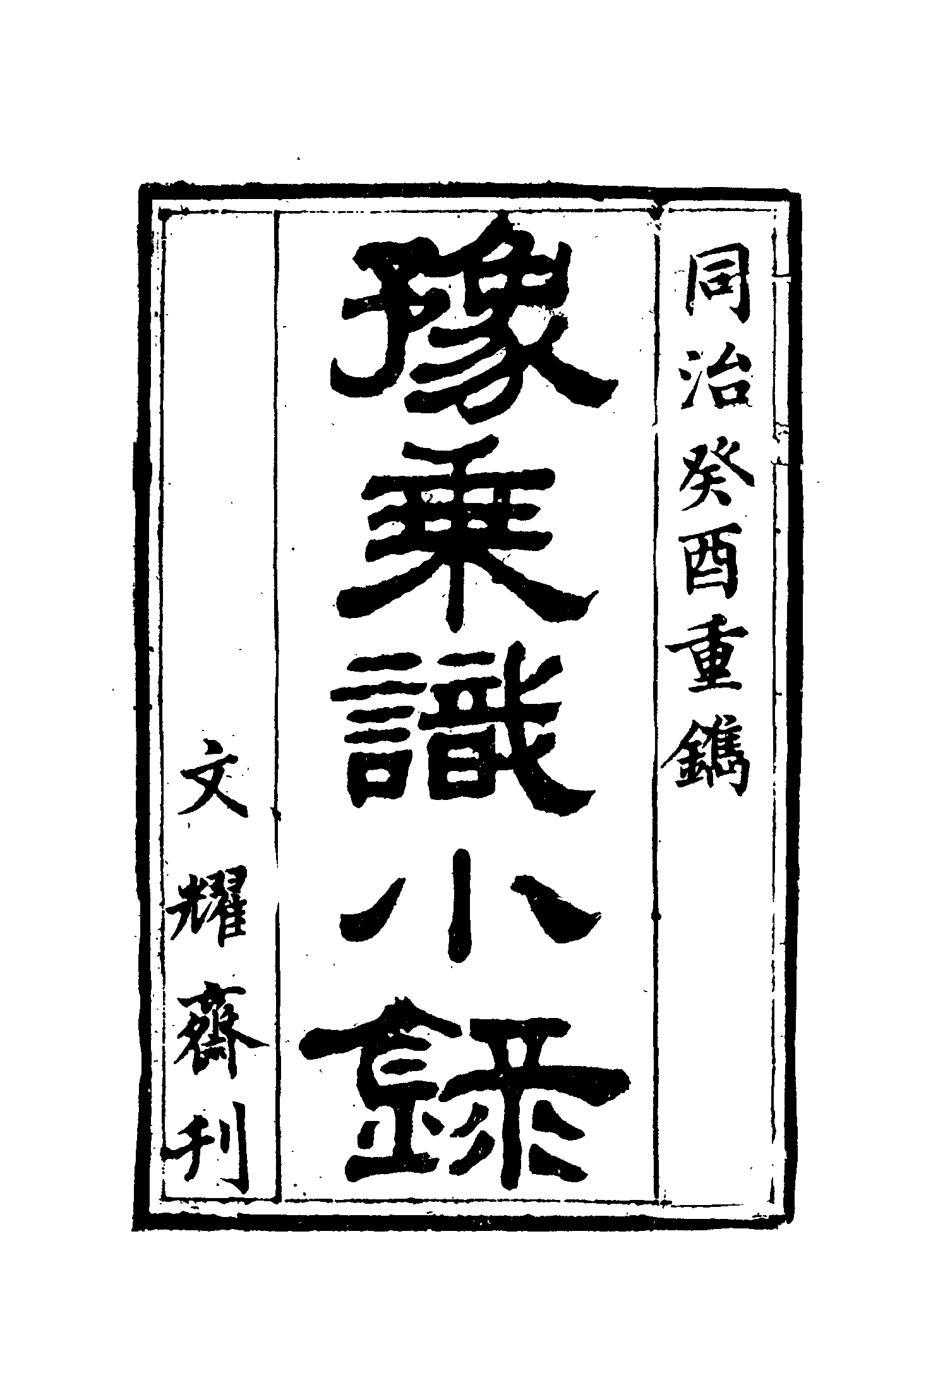 同治癸酉重鐫
豫乗識小錄
文耀齋刊